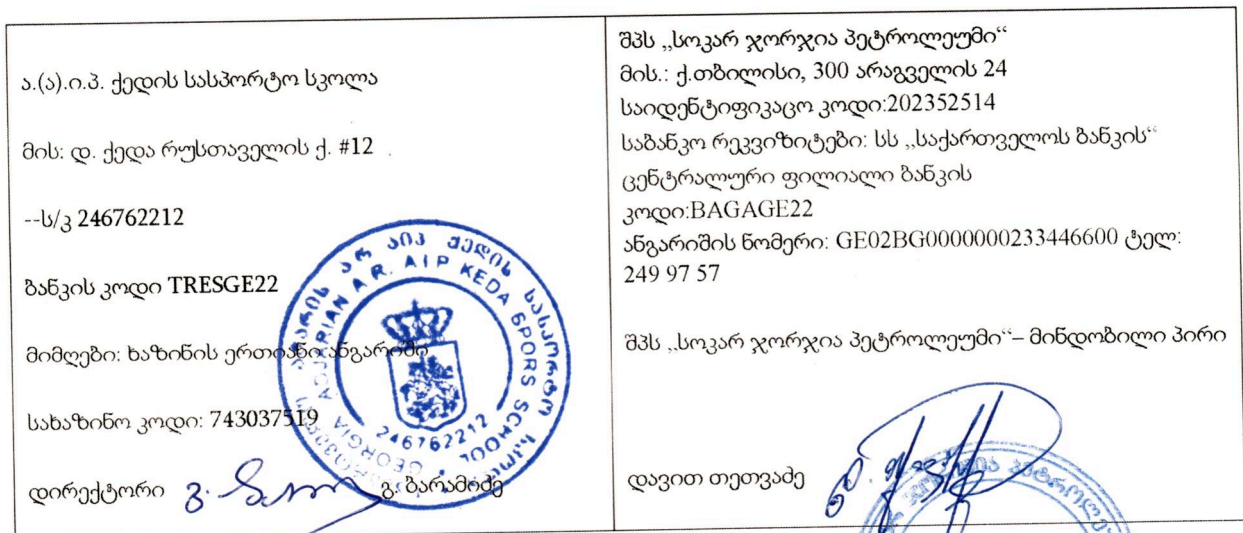 ა.(ა).ი.პ. ქედის სასპორტო სკოლა
მის: დ. ქედა რუსთაველის ქ. #12
--ს/კ 246762212
ბანკის კოდი TRESGE22
მიმღები: ხაზინის ერთიანი ანგარიში
სახაზინო კოდი: 743037519
დირექტორი გ. ბარამიძე
ADJARIAN A.R. AIP KEDA SPORS SCHOOL
GEORGIA
246762212
შპს „სოკარ ჯორჯია პეტროლეუმი“
მის.: ქ.თბილისი, 300 არაგველის 24
საიდენტიფიკაცო კოდი:202352514
საბანკო რეკვიზიტები: სს „საქართველოს ბანკის“
ცენტრალური ფილიალი ბანკის
კოდი:BAGAGE22
ანგარიშის ნომერი: GE02BG0000000233446600 ტელ:
249 97 57
შპს „სოკარ ჯორჯია პეტროლეუმი“– მინდობილი პირი
დავით თეთვაძე